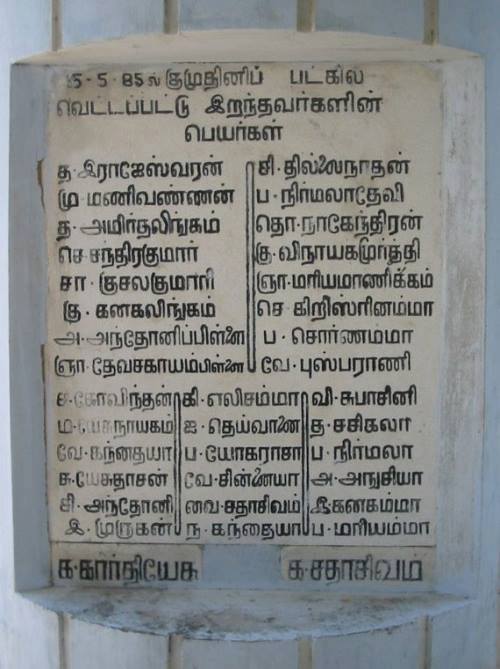 15-5-85ல் குமுதினிப் படகில்
வெட்டப்பட்டு இறந்தவர்களின்
பெயர்கள்
த·இராஜேஸ்வரன்
மு·மணிவண்ணன்
த·அமிர்தலிங்கம்
செ·சந்திரகுமார்
சா·குசலகுமாரி
கு·கனகலிங்கம்
அ·அந்தோனிப்பிள்ளை
ஞா·தேவசகாயம்பிள்ளை
சி·தில்லைநாதன்
ப·நிர்மலாதேவி
தொ·நாகேந்திரன்
கு·விநாயகமூர்த்தி
ஞா·மரியமாணிக்கம்
செ·கிறிஸ்ரினம்மா
ப·சொர்ணம்மா
வே·புஸ்பராணி
ச·கோவிந்தன்
ம·யேசுநாயகம்
வே·கந்தையா
சு·யேசுதாசன்
சி·அந்தோனி
இ·முருகன்
கி·எலிசம்மா
ஐ·தெய்வானை
ப·யோகராசா
வே·சின்னையா
வை·சதாசிவம்
ந·கந்தையா
வி·சுபாசினி
த·சசிகலா
ப·நிர்மலா
அ·அநுசியா
கனகம்மா
ப·மரியம்மா
க·கார்தியேசு
க·சதாசிவம்